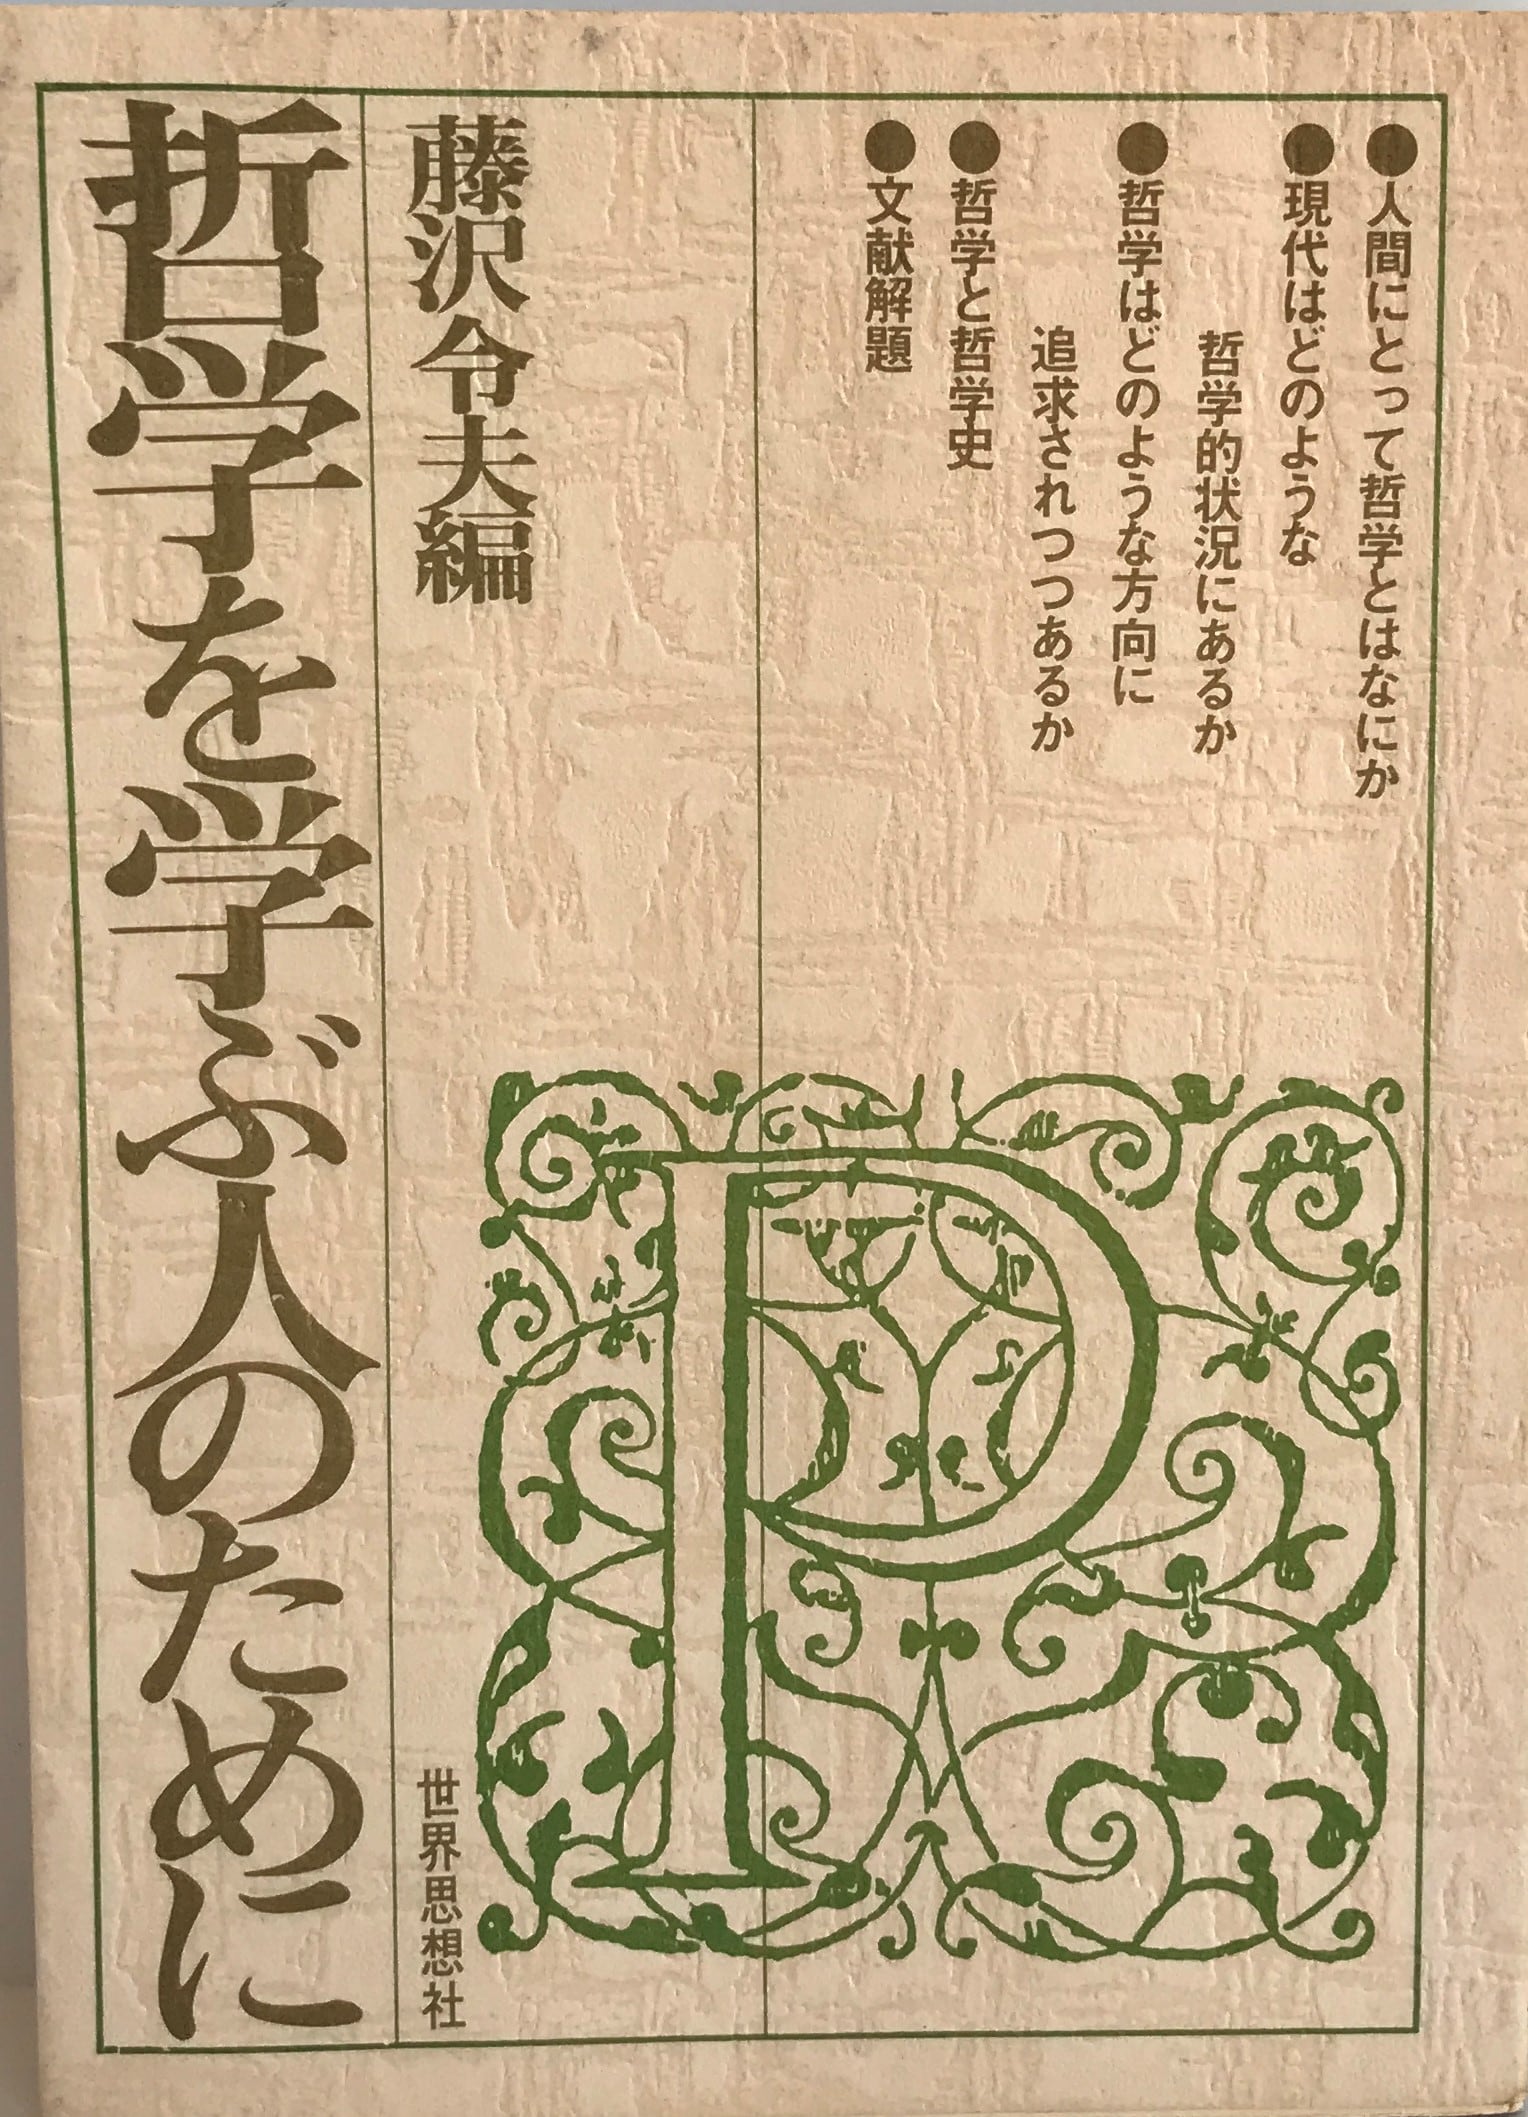 ●人間にとって哲学とはなにか
●現代はどのような
哲学的状況にあるか
●哲学はどのような方向に
追求されつつあるか
●哲学と哲学史
●文献解題
藤沢令夫編
世界思想社
哲学を学ぶ人のために
P